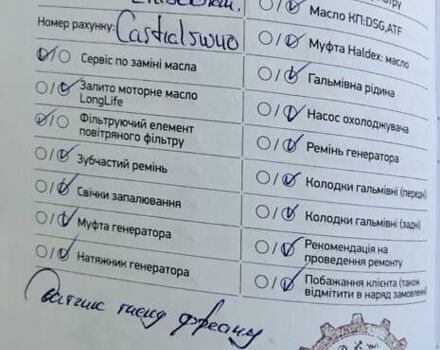 Номер рахунку: Castrol 5w40
Сервіс по заміні масла
Залито моторне масло
LongLife
Фільтруючий елемент
повітряного фільтру
Зубчастий ремінь
Свічки запалювання
Муфта генератора
Натяжник генератора
Масло КП:DSG,ATF
Муфта Haldex: масло
Гальмівна рідина
Насос охолоджувача
Ремінь генератора
Колодки гальмівні (передні)
Колодки гальмівні (задні)
Рекомендація на
проведення ремонту
Побажання клієнта (також
відмітити в наряд замовленні)
Датчик тиску фреону